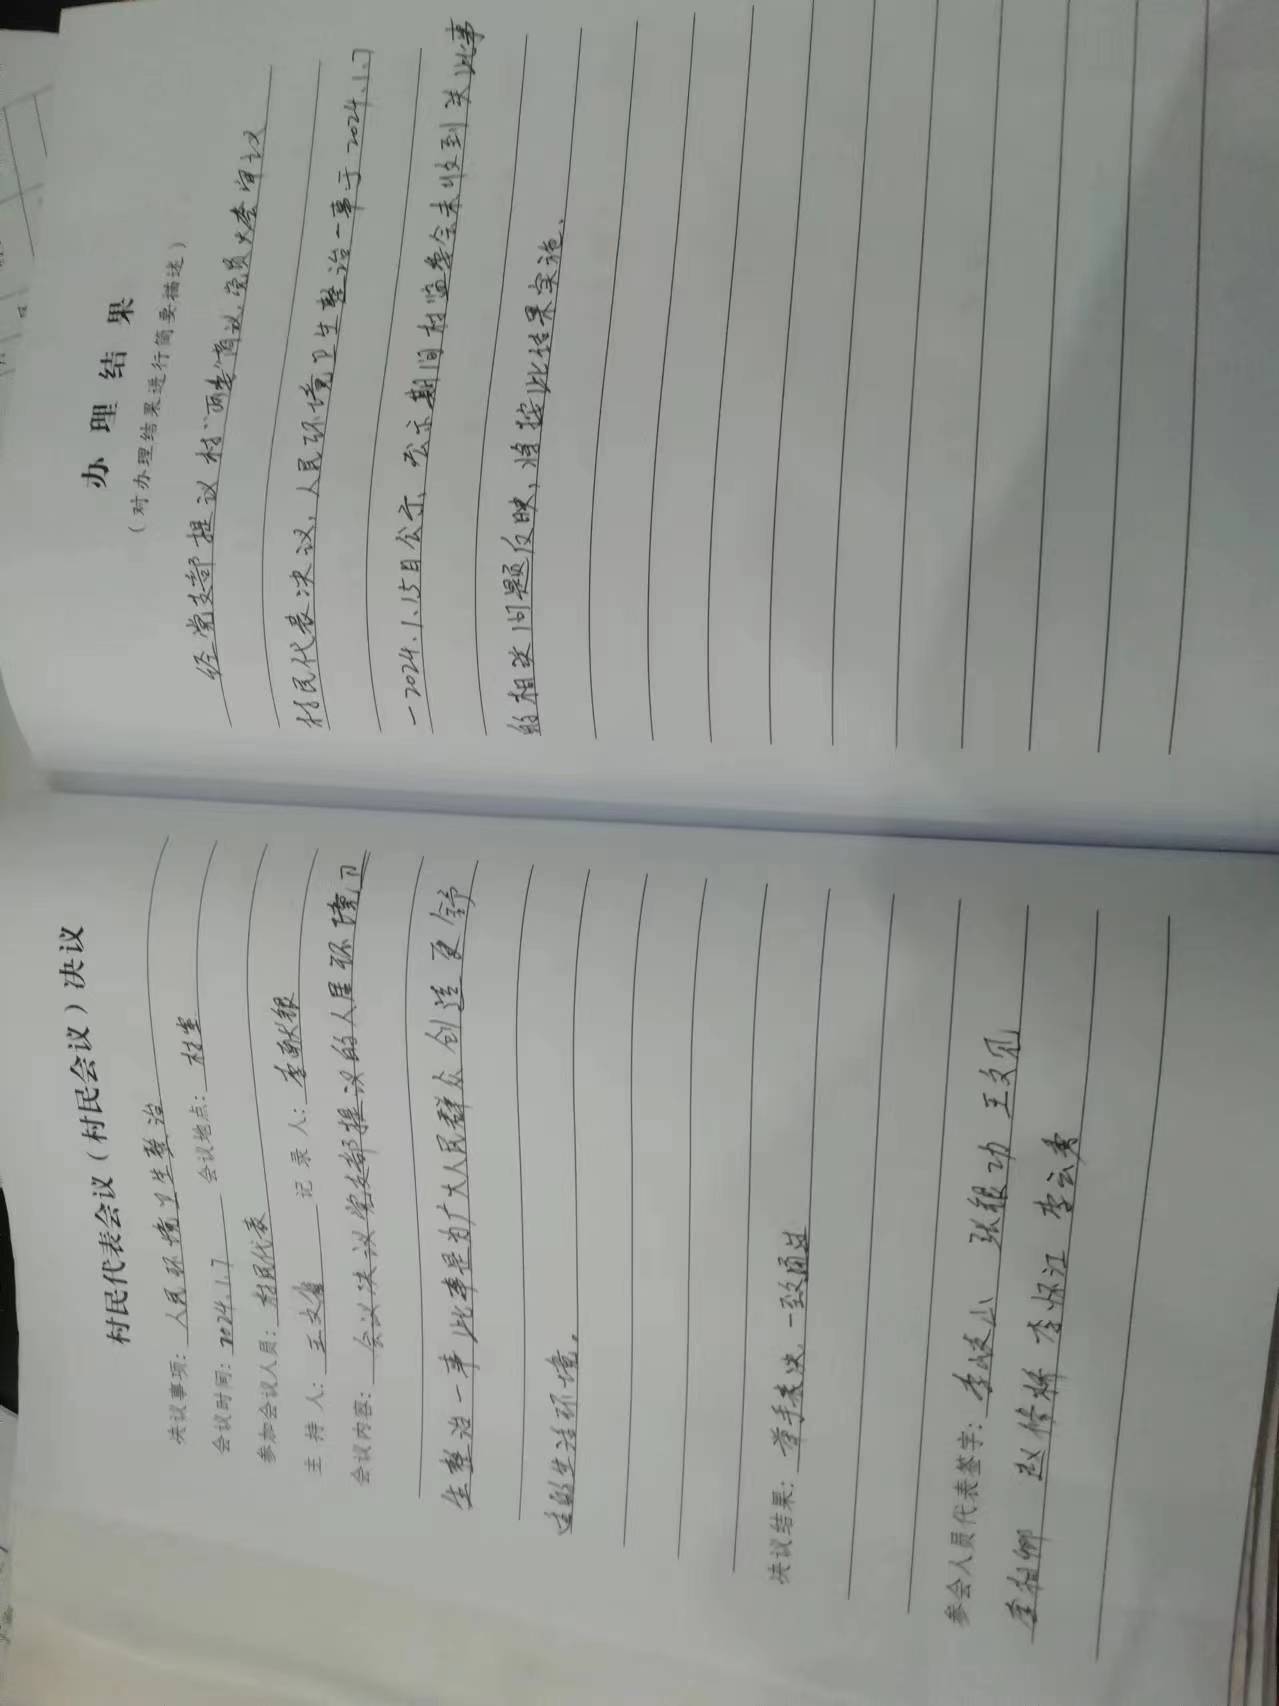 村民代表会议（村民会议）决议
决议事项：人民环境卫生整治
会议时间：2024.1.7 会议地点：村室
参加会议人员：村民代表
主持人：王文 记录人：李献银
会议内容：会议决议党支部提议的人居环境卫
生整治一事 此事是为广大人民群众创造更舒
适的生活环境。
决议结果：举手表决，一致通过
参会人员代表签字：李 张银功 王文
李相卿 赵修 李怀江 李云
办理结果
（对办理结果进行简要描述）
经党支部提议 村“两委”商议，党员大会审议
村民代表决议，人民环境卫生整治一事于2024.1.7
-2024.1.15日公示，公示期间村监委会未收到关此事
的相关问题反映，将按此结果实施、